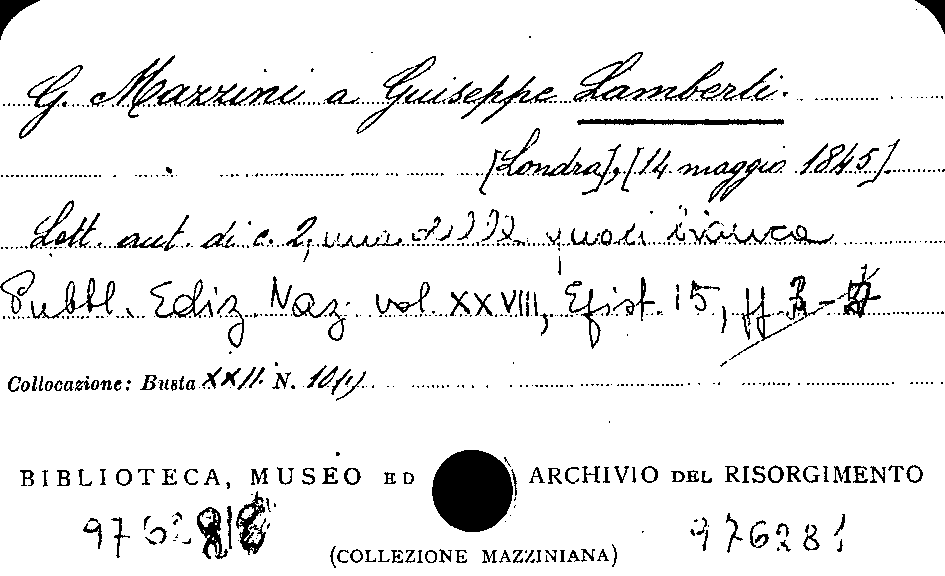 G. Mazzini a Giuseppe Lamberti.
[Londra], [14 maggio 1845].
Lett. aut. di c. 2, una di quali bianca
Pubbl. Ediz. Naz. vol. XXVIII, Epist. 15, pp
Collocazione: Busta XXII. N. 10(1)
BIBLIOTECA, MUSEO ED ARCHIVIO DEL RISORGIMENTO
976281
(COLLEZIONE MAZZINIANA)